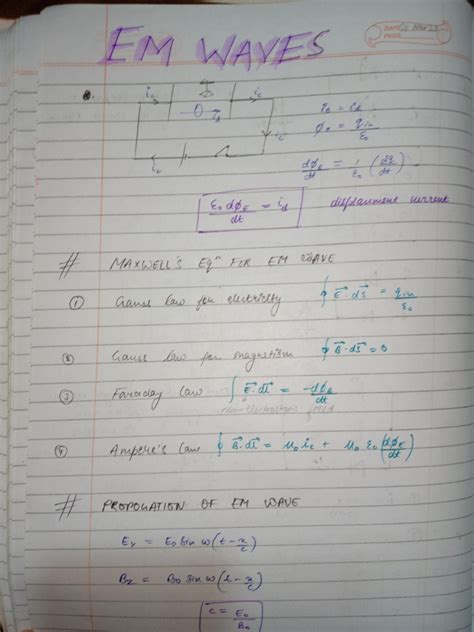 EM WAVES
DATE
PAGE
i_c i_c
i_d
i_c
i_c
i_c = i_d
ϕ_e = q_in/ε₀
dϕ_E/dt = 1/ε₀ (dq/dt)
ε₀ dϕ_E/dt = i_d displacement current
# MAXWELL'S Eqⁿ FOR EM WAVE
① Gauss law for electricity ∮ E⃗·ds⃗ = q_in/ε₀
② Gauss law for magnetism ∮ B⃗·ds⃗ = 0
③ Faraday law ∫ E⃗·dl⃗ = -dϕ_B/dt
non-electrostatic field
④ Ampere's law ∮ B⃗·dl⃗ = μ₀ i_c + μ₀ ε₀ (dϕ_E/dt)
# PROPOGATION OF EM WAVE
E_y = E₀ sin ω(t - x/c)
B_z = B₀ sin ω(t - x/c)
c = E₀/B₀